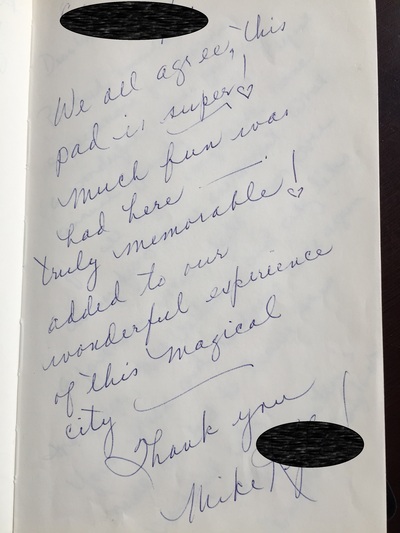 We all agree, this
pad is super!
much fun was
had here —.
truly memorable!
added to our
wonderful experience
of this magical
city —
Thank you
Mike